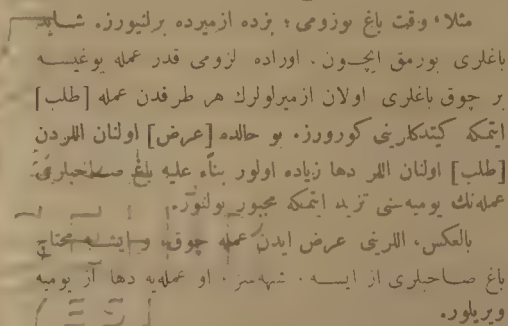 مثلا، وقت باغ بوزومی؛ بزده ازمیرده برلنیورز. شاید
باغلری بورمق ایچون. اوراده لزومی قدر عمله یوغیسه
بر چوق باغلری اولان ازمیرلولرك هر طرفدن عمله [طلب]
ایتمكه كیتدكلرینی كورورز. بو حالده [عرض] اولنان اللردن
[طلب] اولنان اللر دها زیاده اولور بناء علیه باغ صاحبلری
عمله‌نك یومیه‌سنی تزید ایتمكه مجبور بولنور.
بالعكس، اللرینی عرض ایدن عمله چوق، و ایشه محتاج
باغ صاحبلری از ایسه. شبهه‌سز. او عمله‌یه دها آز یومیه
ویریلور.